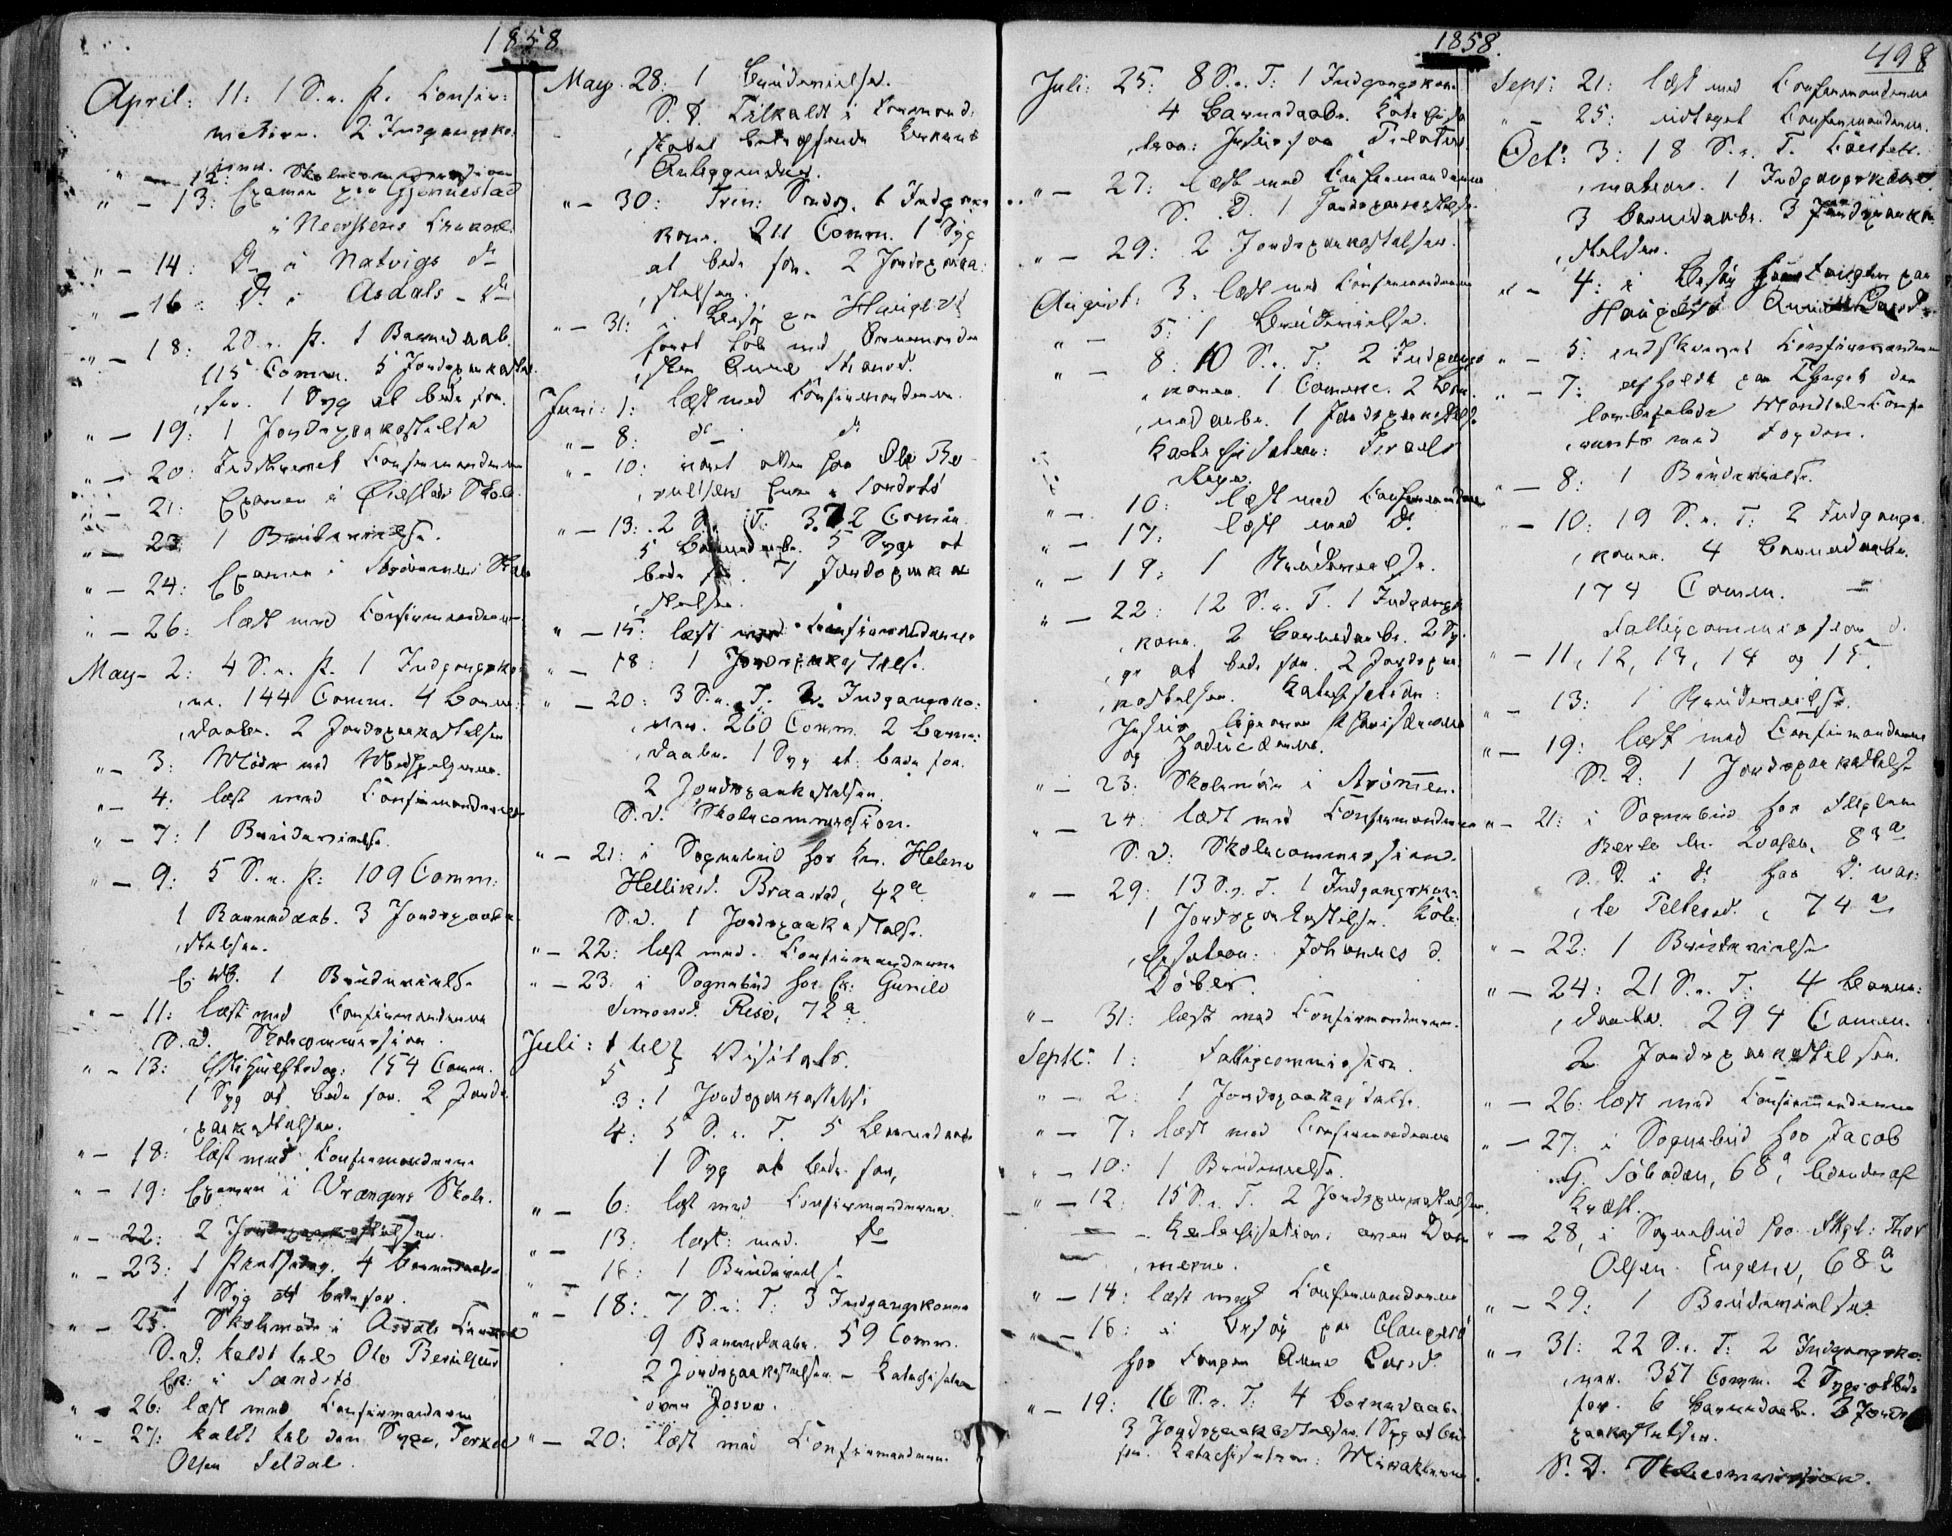 1858
April: 11: 1 S. e. P. Confir:
mation. 2 Indgangsko:
ner.
" — 12: Skolecommission
" — 13: Examen paa Gjennestad
i Neersteens Kreds
" — 14: do i Natvigs do
" — 16: do i Asdals - do
" — 18: 2 S. e. P. 1 Barnedaab.
115 Comm. 5 Jordspaakastel
ser. 1 Syg at bede for.
" — 19: 1 Jordspaakastelse
" — 20: Indskrevet Confirmanderne
" — 21: Examen i Øiestad Skole
" — 23: 1 Brudevielse.
" — 24: Examen i Strømmens Skole
" — 26: læst med Confirmanderne
May - 2: 4 S. e. P. 1 Indgangsko:
ne. 144 Comm. 4 Barne
daabe. 2 Jordspaakastelser
" — 3: Møde med Medhjelperne.
" — 4: læst med Confirmanderne
" — 7: 1 Brudevielse
" — 9: 5 S. e. P: 109 Comm:
1 Barnedaab. 3 Jordspaaka
stelser.
1 Brudevielse
" — 11: læst med Confirmanderne
S. d. Skolecommission.
" — 13: Christi Himmelfartsdag: 154 Comm.
1 Syg at bede for. 2 Jords
paakastelser.
" — 18: læst med Confirmanderne
" — 19: Examen i Vrængens Skole.
" — 22: 2 Jordspaakastelser.
" — 23: 1 Pintsedag. 4 Barnedaabe
1 Syg at bede for.
" — 25: Skolemøde i Asdals Kreds
S. d: kaldt til Ole Berulfsens
Ek: i Sandstø
" — 26: læst med Confirmanderne
" — 27: kaldt til den Syge, Terkel
Olsen Seldal.
May. 28: 1 Brudevielse.
S. D. Tilkaldt i Formand:
skabet betræffende
Anliggender.
" — 30: Trin: Søndag. 1 Indgangs
kone. 211 Comm. 1 Syg
at bede for. 2 Jordspaaka:
stelser.
" — 31: i Besøg paa Haugerø
Anne
Juni: 1: læst med Confirmanderne.
" — 8: do do
" — 10: været atter hos Ole Be
rulfsens Enke i Sandstø
" — 13: 2 S. e. T: 372 Comm.
5 Barnedaabe. 5 Syge at
bede for. 1 Jordspaaka
stelse.
" — 15: læst med Confirmanderne
" — 18: 1 Jordspaakastelse.
" — 20: 3 S. e. T. 2 Indgangsko:
ner. 260 Comm. 2 Barne:
daabe. 1 Syg at bede for.
2 Jordspaakastelser.
S. d. Skolecommission.
" — 21: i Sognebud hos Helene
Helliksd. Braastad, 42 a
S. d. 1 Jordspaakastelse.
" — 22: læst med Confirmanderne
" — 23: i Sognebud hos Ek: Gunild
Simonsd. Risø, 72 a
Juli: 1 til 5 Visitats.
3: 1 Jordspaakastelse
4: 5 S. e. T. 5 Barnedaabe
1 Syg at bede for,
" — 6: læst med Confirmanderne
" — 13: læst med do
" — 16: 1 Brudevielse
" — 18: 7 S. e. T: 3 Indgangskoner
9 Barnedaabe. 59 Comm.
2 Jordspaakastelser - Katechisation
over Josva.
" — 20: læst med Confirmanderne.
1858.
498
Juli: 25: 8 S. e. T: 1 Indgangskone
4 Barnedaabe. Katechisa
tion: Jesus for Pilatus.
" — 27: læst med Confirmanderne
S. D. 1 Jordspaakastelse.
" — 29: 2 Jordspaakastelser.
August: 3: læst med Confirmanderne
" — 5: 1 Brudevielse.
" — 8: 10 S. e. T: 2 Indgangs
koner. 1 Comm. 2 Bar
nedaabe. 1 Jordspaakastelse
Katechisation: Israels
" — 10: læst med Confirmanderne
" — 17: læst med do.
" — 19: 1 Brudevielse.
" — 22: 12 S. e. T. 1 Indgangs
kone. 2 Barnedaabe. 2 Sy:
ge at bede for. 2 Jordspaa
kastelser. Katechisation:
Jesus
og Saducæerne.
" — 23: Skolemøde i Strømmen.
" — 24: læst med Confirmanderne
S. d. Skolecommission.
" — 29: 13 S. e. T. 1 Indgangskone.
1 Jordspaakastelse. Kate:
chisation: Johannes d.
Døber.
" — 31: læst med Confirmanderne.
Septb: 1: Fattigcommission.
" — 2: 1 Jordspaakastelse.
" — 7: læst med Confirmanderne
" — 10: 1 Brudevielse
" — 12: 15 S. e. T. 2 Jordspaakastelser.
Katechisation: over Dom
merne.
" — 14: læst med Confirmanderne
" — 16: i Besøg paa Haugerø
hos Fangen Anne Larsd.
" — 19: 16 S. e. T: 4 Barnedaabe.
3 Jordspaakastelser. 1 Syg at bede
for. Katechisation: Miraklerne.
Sept: 21: læst med Confirmanderne
" — 25: udtaget Confirmanderne.
Oct: 3: 18 S. e. T. Confir
mation. 1 Indgangskone,
3 Barnedaabe. 3 Jordspaaka
stelser.
" — 4: i Besøg hos Fangen paa
Haugerø Anne Larsd.
" — 5: indskrevet Confirmanderne
" — 7: afholdt paa Thinget den
befalede
med Fogden.
" — 8: 1 Brudevielse.
" — 10: 19 S. e. T: 2 Indgangs
koner. 4 Barnedaabe.
174 Comm. —
Fattigcommission d.
" — 11, 12, 13, 14 og 15.
" — 13: 1 Brudevielse.
" — 19: læst med Confirmanderne
S. D: 1 Jordspaakastelse
" — 21: i Sognebud hos
83 a
S. D. i do hos
Pettersd., 74 a
" — 22: 1 Brudevielse
" — 24: 21 S. e. T: 4 Barne:
daabe. 294 Comm.
2 Jordspaakastelser.
" — 26: læst med Confirmanderne
" — 27: i Sognebud hos Jacob
G. Sibodden, 68 a, lidende af
Kræft.
" — 28, i Sognebud hos Skpt: Thor
Olsen Engene, 68 a
" — 29: 1 Brudevielse
" — 31: 22 S. e. T: 2 Indgangsko:
ner. 357 Comm. 2 Syge at bede
for. 6 Barnedaabe. 3 Jords
paakastelser.
S. D. Skolecommission.